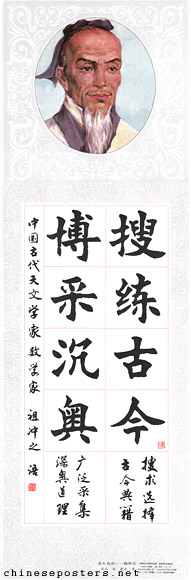 搜练古今
博采沉奥
中国古代天文学家数学家 祖冲之 语
搜求选择
古今典籍
广泛采集
深奥道理
chineseposters.net